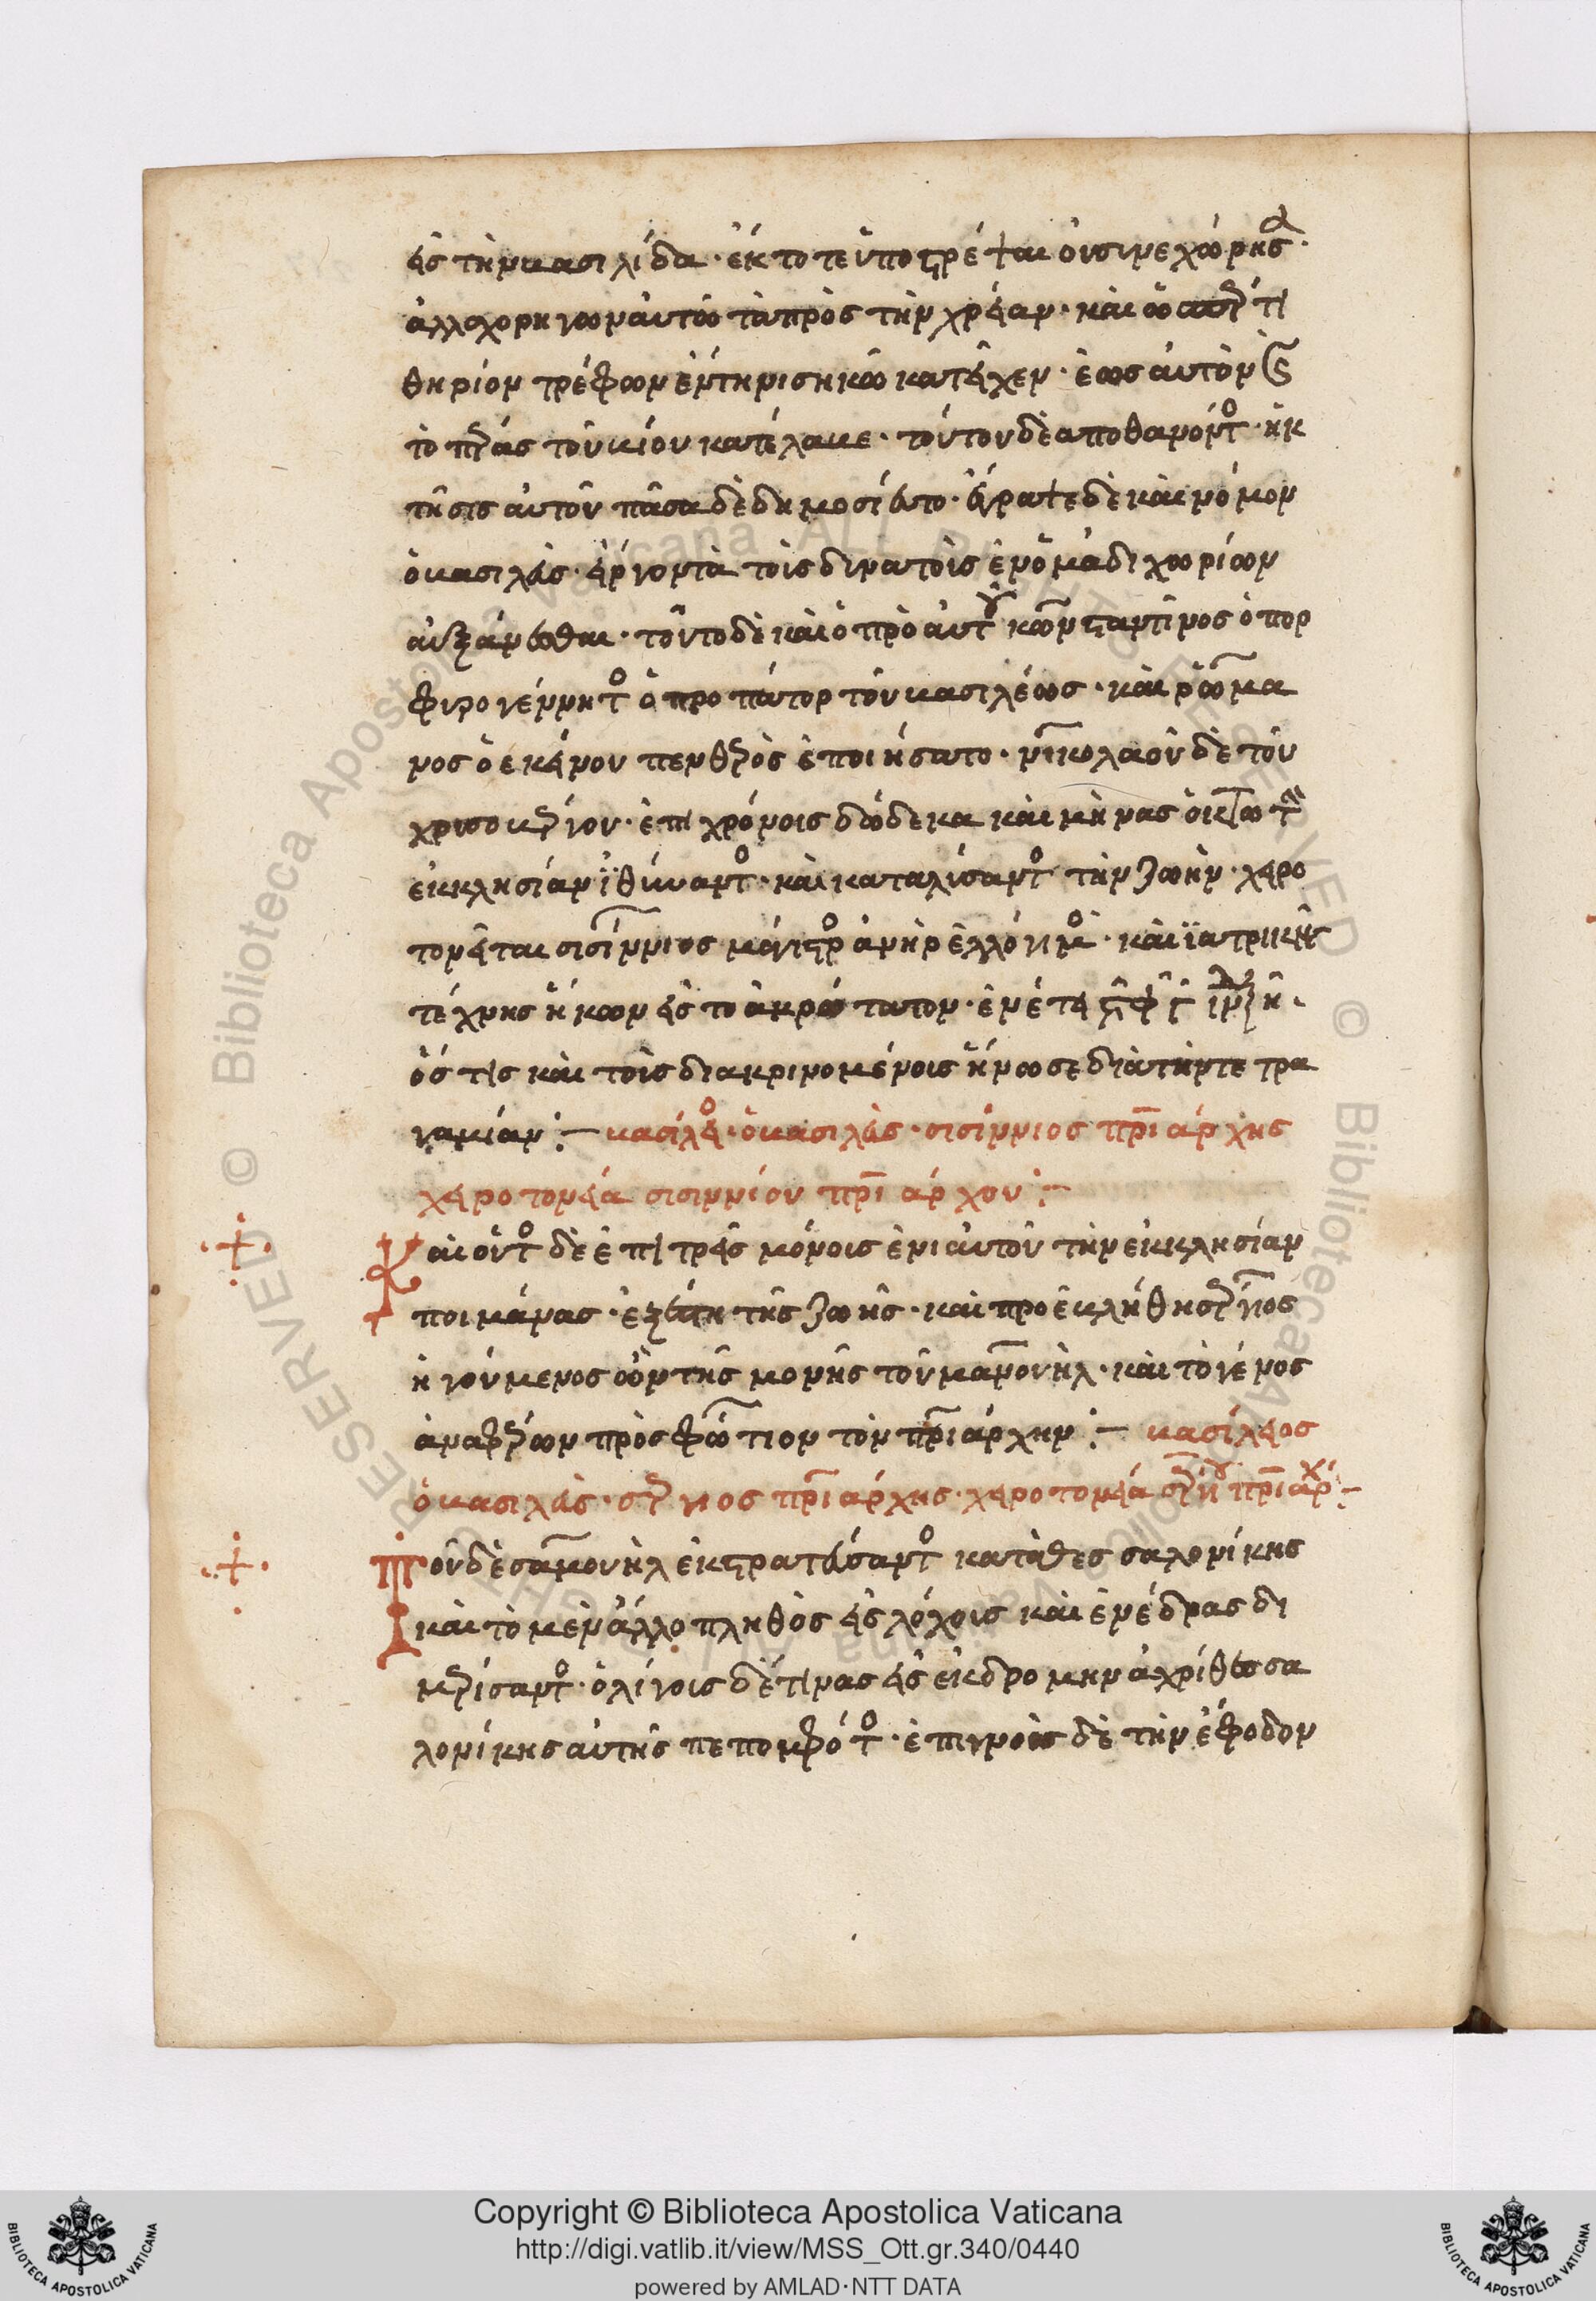 εἰς τὴν βασιλίδα· ἐκ τότε ὑποστρέψαι οὐ συνεχώρησ(α)·
ἀλλ χορηγων αὐτῶ τὰ πρὸς τὴν χρείαν· καὶ ὡσπέρ τι
θηρίον τρέφων ἐν τη νισηκῶ κατεῖχεν· ἑως αὐτὸν
το πέρας τοῦ βίου κατέλαβε· τούτου δὲ αποθανόντο· ἡ κ
τῆσις αὐτοῦ πᾶσα δὲ δημοσίευτο· ἔγραψε δὲ καὶ νόμον
ὁ βασιλεὺς· εἴργοντα τοῖς δυνατοῖς ἐν ὁμάδι χωρίων
αὐξάνεσθαι· τοῦτο δὲ καὶ ὁ πρὸ αὐτοῦ κωνσταντῖνος ὁ πορ
φιρογέννητο ὁ προπάτορ τοῦ βασιλέως· καὶ ρῶμα
νος ὁ εκείνου πενθερὸς ἐποιήσατο· νικολαοῦ δὲ τοῦ
χρισοβέργου· ἐπι χρόνοις δώδεκα καὶ μῆνας ὀκτω τὴν
ἐκκλησίαν ϊθύναντο· καὶ καταλύσαντο τὴν ζωὴν· χειρο
τονεῖται σισίννιος μάγιστρο ἀνὴρ ἐλλόγιμο· καὶ ϊατρικῆς
τέχνης ἥκων εἰς το ἀκρώτατον· ἐν έτει ϛ φ γ ἰνδ η·
ὁς τις καὶ τοῖς διακρινομένοις ἥνωσε διὰ τὴν τετρα
γαμίαν:— βασίλειο· ὁ βασιλεὺς· σισίννιος πρι άρχης
χειροτονεία σισιννίου πρι άρχου:—
Και οὗτο δὲ ἐπι τρεῖς μόνοις ἐνιαυτοῦ τὴν εκκλησίαν
ποιμάνας· ἐξέστη τῆς ζωῆς· καὶ προεκλήθη σέργιος
ἡγούμενος ὢν τῆς μονῆς τοῦ μανουὴλ· καὶ τὸ γένος
ἀναφέρων πρὸς φώτιον τὸν πριάρχην:— βασίλειος
ὁ βασιλεὺς· σέργιος πριάρχης· χειροτονεία σεργίου πριάρχ:—
Τοῦ δὲ σαμουὴλ ἐκστρατεύσαντο κατὰ θεσσαλονίκης
καὶ τὸ μὲν ἄλλο πλῆθὸς εἰς λόχοις καὶ ἐνέδρας δι
μερίσαντο· ὀλίγοις δέ τινας εἰς εκδρομην ἀχρί θεσσα
λονίκης αὐτῆς πεπομφότο· ἐπιγνοὺς δὲ τὴν ἐφοδον
Copyright © Biblioteca Apostolica Vaticana
http://digi.vatlib.it/view/MSS_Ott.gr.340/0440
powered by AMLAD·NTT DATA